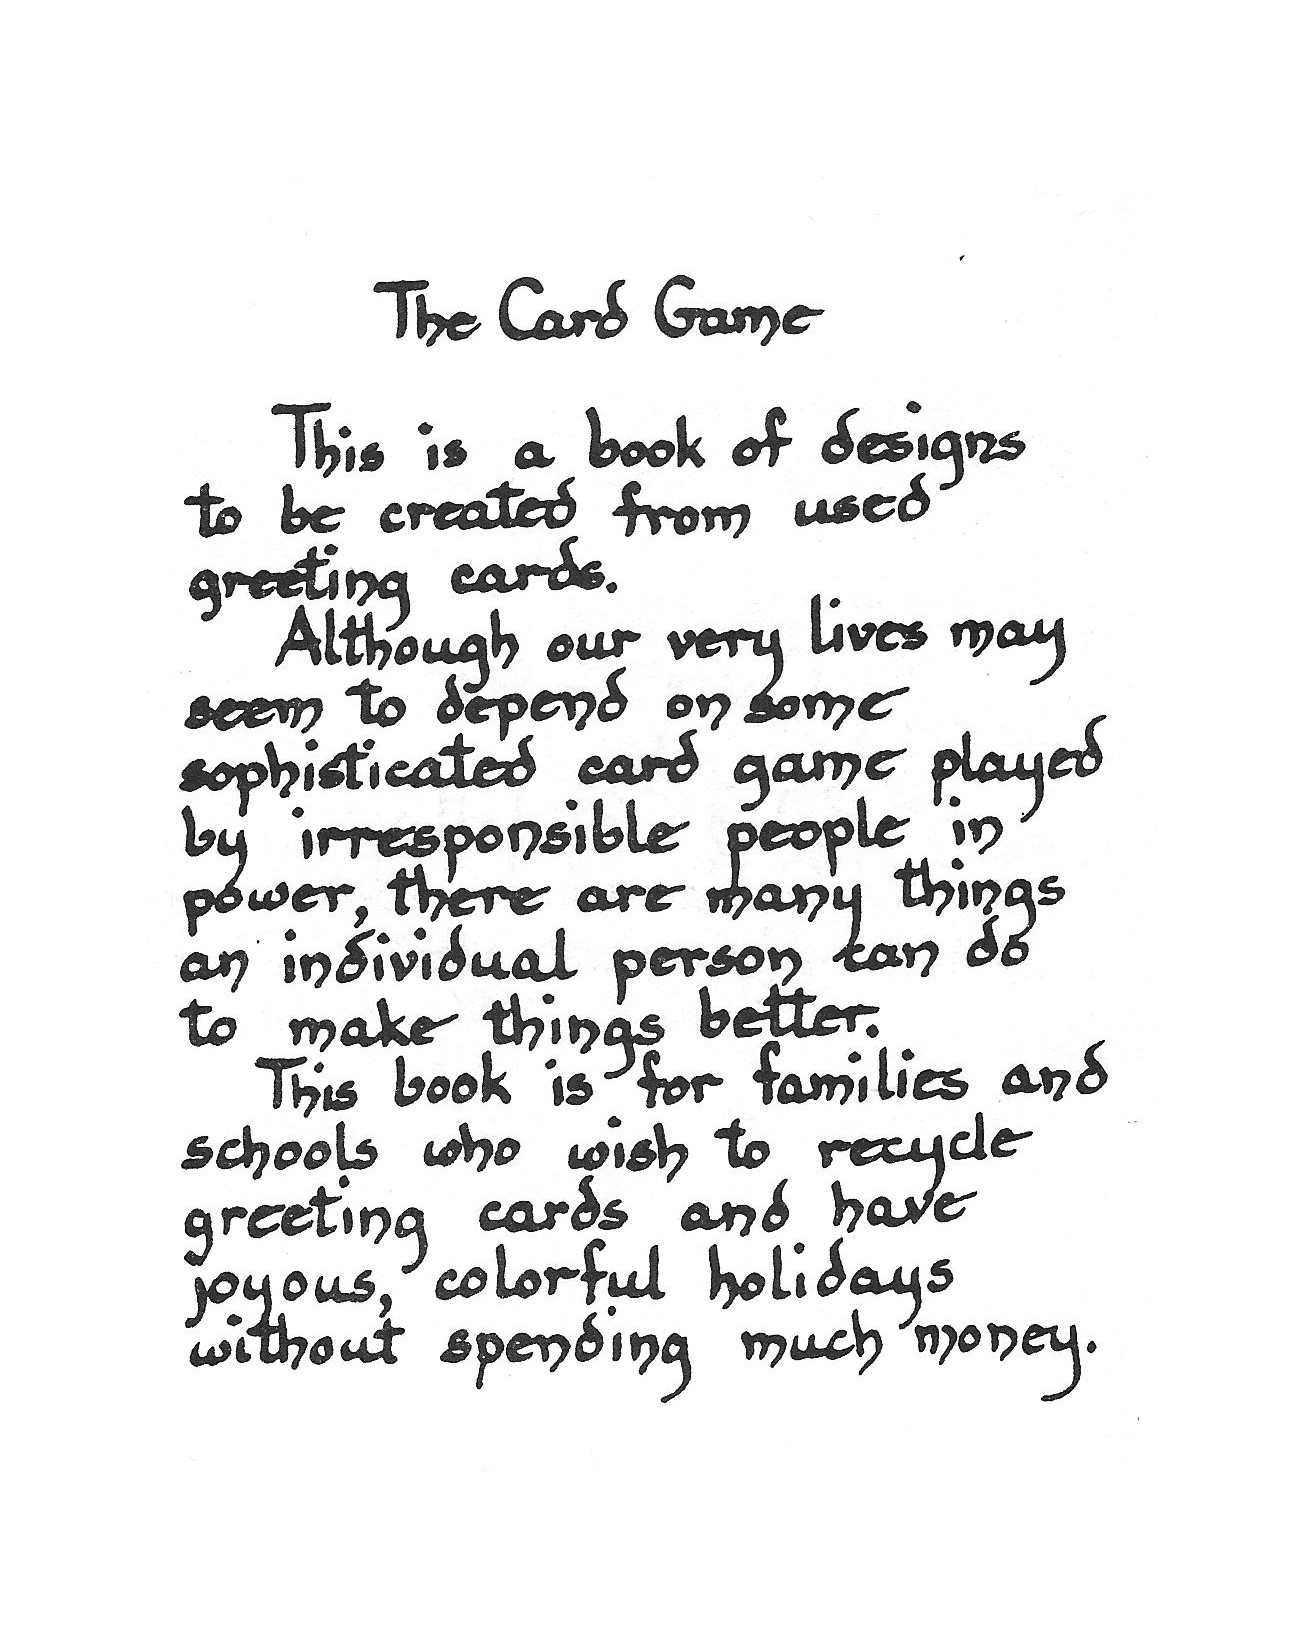 The Card Game
This is a book of designs
to be created from used
greeting cards.
Although our very lives may
seem to depend on some
sophisticated card game played
by irresponsible people in
power, there are many things
an individual person can do
to make things better.
This book is for families and
schools who wish to recycle
greeting cards and have
joyous, colorful holidays
without spending much money.